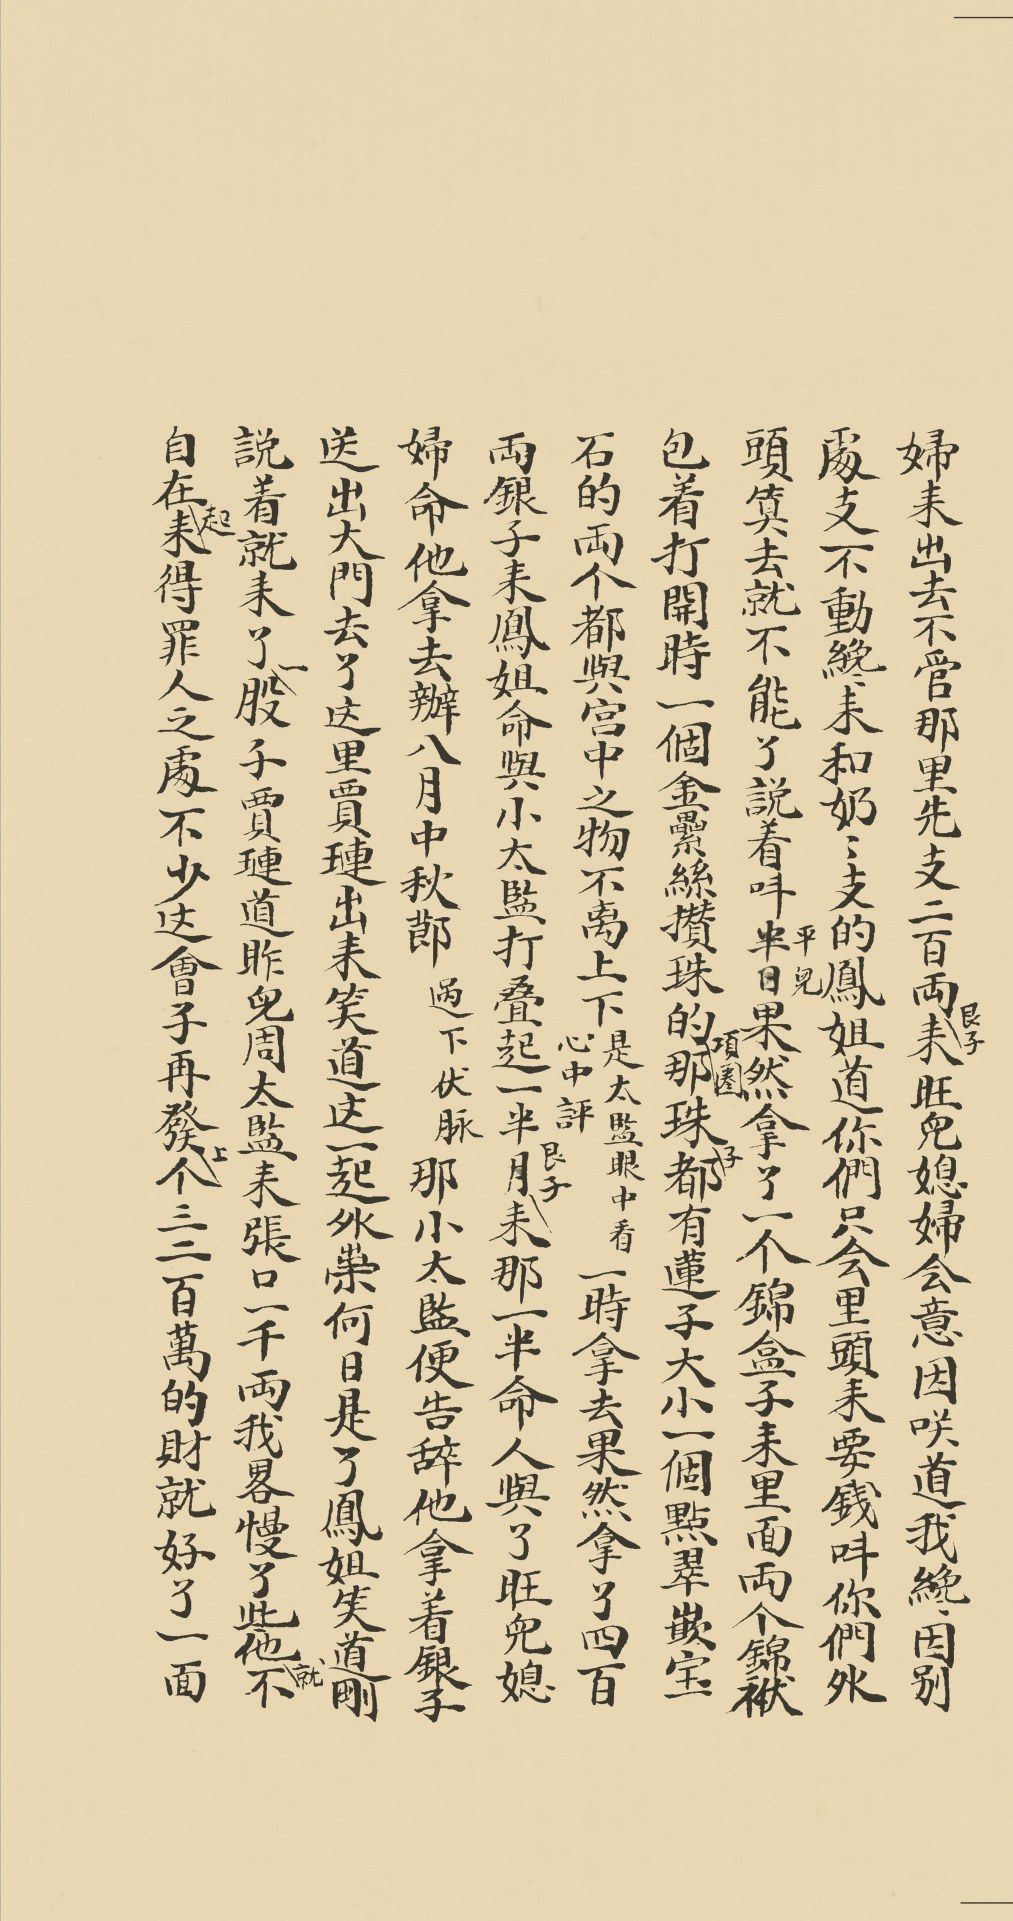 婦耒出去不管那里先支二百両銀子耒旺兒媳婦会意因咲道我纔因别
處支不動纔耒和奶〻支的鳳姐道你們只会里頭耒要錢呌你們外
頭筭去就不能了説着呌平兒半日果然拿了一个錦盒子耒里面両个錦袱
包着打開時一個金纍絲攅珠的項圈那珠子都有蓮子大小一個點翠嵌宝
石的両个都與宫中之物不离上下是太監眼中看心中評一時拿去果然拿了四百
両銀子耒鳳姐命與小太監打叠起一半艮子月耒那一半命人與了旺兒媳
婦命他拿去辦八月中秋節過下伏脉那小太監便告辞他拿着銀子
送出大門去了这里賈璉出耒笑道这一起外祟何日是了鳳姐笑道剛
説着就耒了一股子賈璉道昨兒周太監耒張口一千両我畧慢了些他就不
自在起耒得罪人之處不少这會子再發上个三二百萬的財就好了一面